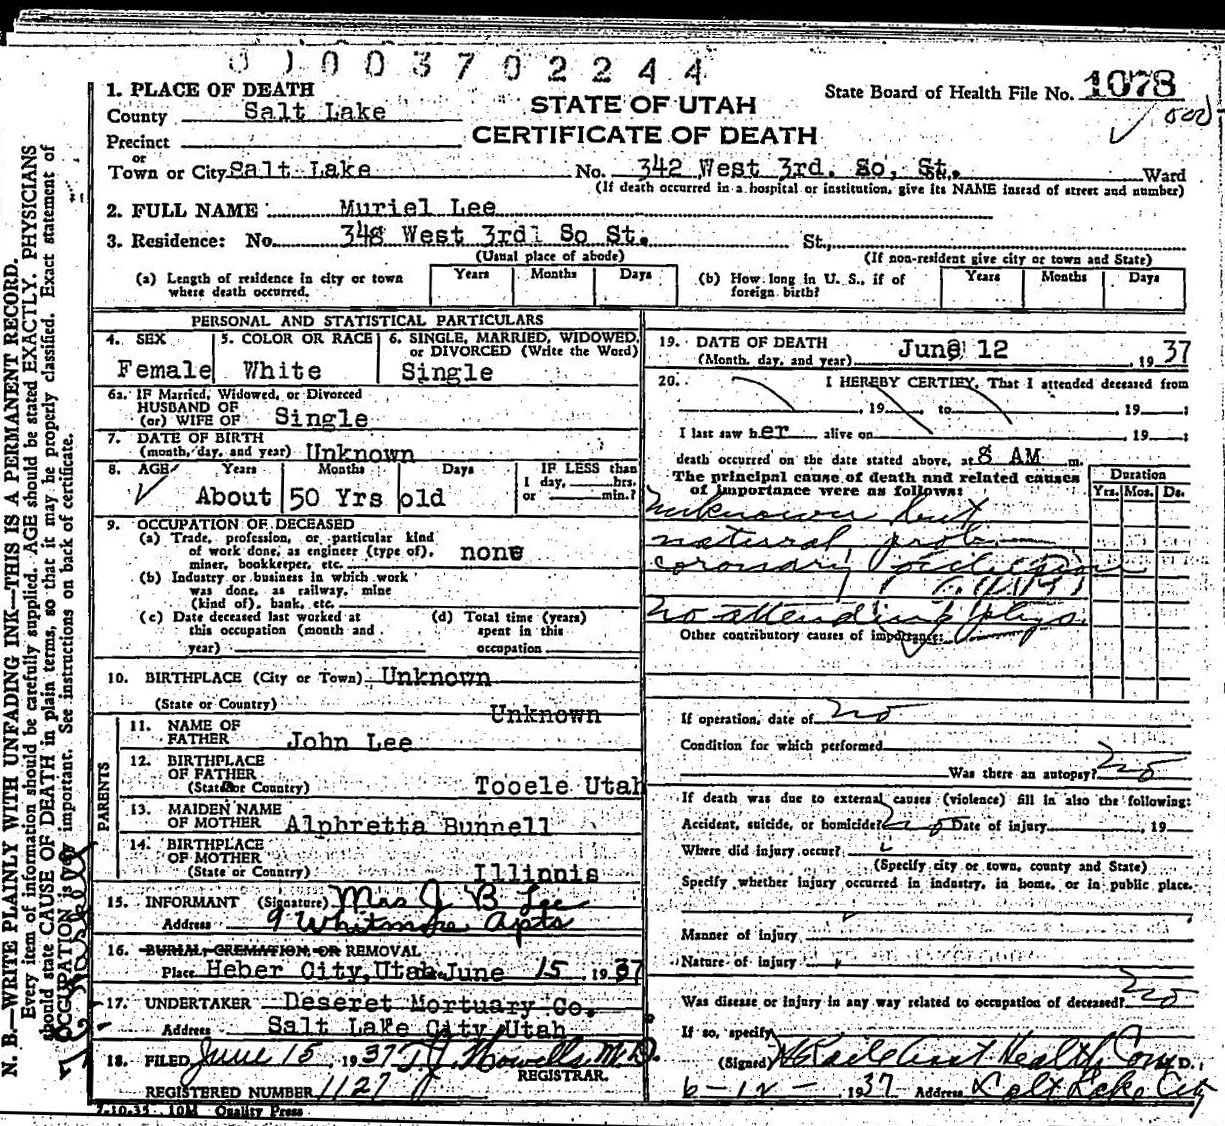 0 0 0 0 3 7 0 2 2 4 4
1. PLACE OF DEATH
County Salt Lake
STATE OF UTAH
CERTIFICATE OF DEATH
State Board of Health File No. 1078
Precinct
or
Town or City Salt Lake No. 342 West 3rd. So, St. Ward
(If death occurred in a hospital or institution, give its NAME instead of street and number)
2. FULL NAME Muriel Lee
3. Residence: No. 348 West 3rd So St. St.,
(Usual place of abode) (If non-resident give city or town and State)
(a) Length of residence in city or town where death occurred. Years Months Days
(b) How long in U. S., if of foreign birth? Years Months Days
PERSONAL AND STATISTICAL PARTICULARS
4. SEX Female
5. COLOR OR RACE White
6. SINGLE, MARRIED, WIDOWED, or DIVORCED (Write the Word) Single
6a. IF Married, Widowed, or Divorced
HUSBAND OF
(or) WIFE OF Single
7. DATE OF BIRTH
(month, day, and year) Unknown
8. AGE Years Months Days IF LESS than
1 day, hrs.
or min.?
About 50 Yrs old
9. OCCUPATION OF DECEASED
(a) Trade, profession, or particular kind
of work done, as engineer (type of),
miner, bookkeeper, etc. none
(b) Industry or business in which work
was done, as railway, mine
(kind of), bank, etc.
(c) Date deceased last worked at
this occupation (month and
year)
(d) Total time (years)
spent in this
occupation
10. BIRTHPLACE (City or Town) Unknown
(State or Country) Unknown
PARENTS
11. NAME OF
FATHER John Lee
12. BIRTHPLACE
OF FATHER
(State or Country) Tooele Utah
13. MAIDEN NAME
OF MOTHER Alphretta Bunnell
14. BIRTHPLACE
OF MOTHER
(State or Country) Illinois
15. INFORMANT (Signature) Mrs J B Lee
Address 9 Whitmore Apts
16. BURIAL, CREMATION, OR REMOVAL
Place Heber City, Utah June 15 1937
17. UNDERTAKER Deseret Mortuary Co.
Address Salt Lake City, Utah
18. FILED June 15, 1937 T. J. Howells, M.D.
REGISTRAR.
REGISTERED NUMBER 1127
7-10-35 10M Quality Press
19. DATE OF DEATH
(Month, day, and year) June 12 1937
20. I HEREBY CERTIFY, That I attended deceased from
, 19 to , 19 ;
I last saw her alive on 19 ;
death occurred on the date stated above, at 8 AM m.
The principal cause of death and related causes
of importance were as follows:
Duration
Yrs. Mos. Ds.
Unknown but
natural, prob.
coronary
No attending phys.
Other contributory causes of importance:
If operation, date of no
Condition for which performed
Was there an autopsy? no
If death was due to external causes (violence) fill in also the following:
Accident, suicide, or homicide? no Date of injury , 19
Where did injury occur?
(Specify city or town, county and State)
Specify whether injury occurred in industry, in home, or in public place.
Manner of injury
Nature of injury
Was disease or injury in any way related to occupation of deceased? no
If so, specify
(Signed) Health Com M. D.
6-12- 1937 Address Salt Lake City
N. B.—WRITE PLAINLY WITH UNFADING INK—THIS IS A PERMANENT RECORD.
Every item of information should be carefully supplied. AGE should be stated EXACTLY. PHYSICIANS
should state CAUSE OF DEATH in plain terms, so that it may be properly classified. Exact statement of
OCCUPATION is very important. See instructions on back of certificate.